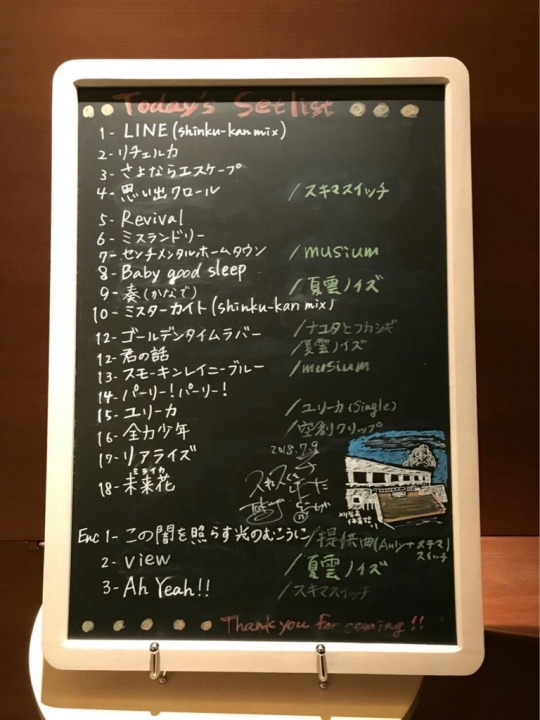 Today's Setlist
1- LINE (shinku-kan mix)
2- リチェルカ
3- さよならエスケープ
4- 思い出クロール /スキマスイッチ
5- Revival
6- ミスランドリー
7- センチメンタルホームタウン /musium
8- Baby good sleep
9- 奏(かなで) /夏雲ノイズ
10- ミスターカイト(shinku-kan mix)
12- ゴールデンタイムラバー /ナユタとフカシギ
12- 君の話 /夏雲ノイズ
13- スモーキンレイニーブルー /musium
14- パーリー!パーリー!
15- ユリーカ /ユリーカ(Single)
16- 全力少年 /空創クリップ
17- リアライズ
18- 未来花 ミライカ
2018.7.9
Enc 1- この闇を照らす光のむこうに /提供曲(Anlyナスキマスイッチ)
2- view /夏雲ノイズ
3- Ah Yeah!! /スキマスイッチ
Thank you for coming!!